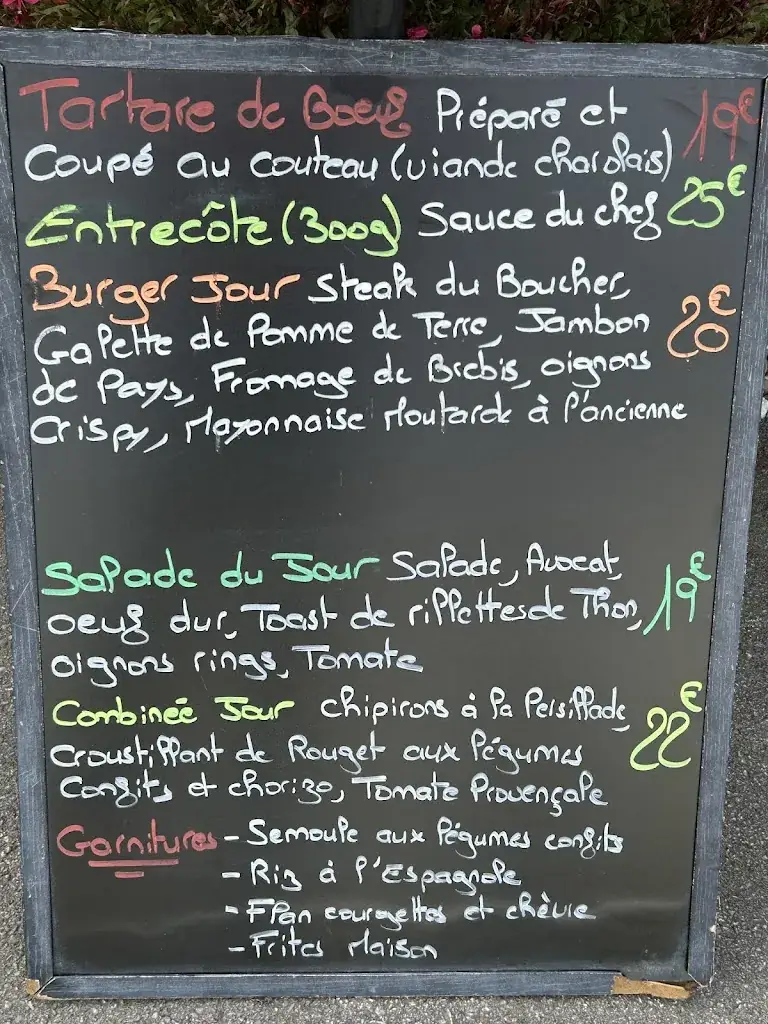 Tartare de Boeuf Préparé et 19€
Coupé au couteau (viande charolais)
Entrecôte (300g) Sauce du chef 25€
Burger Jour Steak du Boucher,
Galette de Pomme de Terre, Jambon 20€
de Pays, Fromage de Brebis, oignons
Crispy, Mayonnaise Moutarde à l'ancienne
Salade du Jour Salade, Avocat,
oeuf dur, Toast de rillettes de Thon, 19€
oignons rings, Tomate
Combinée Jour chipirons à la Persillade, 22€
Croustillant de Rouget aux légumes
Confits et chorizo, Tomate Provençale
Garnitures - Semoule aux légumes confits
- Riz à l'Espagnole
- Flan courgettes et chèvre
- Frites Maison